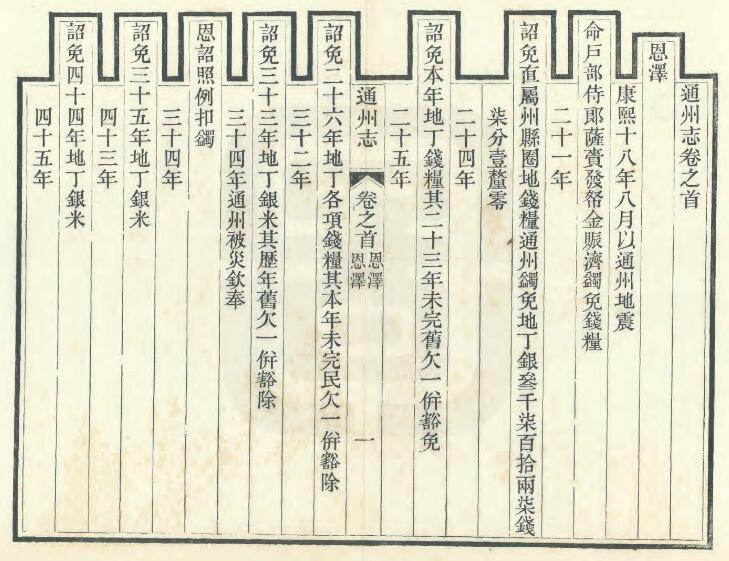 通州志卷之首
恩澤
康熙十八年八月以通州地震
命戶部侍郎薩賚發帑金賑濟蠲免錢糧
二十一年
詔免直屬州縣圈地錢糧通州蠲免地丁銀叄千柒百拾兩柒錢
柒分壹釐零
二十四年
詔免本年地丁錢糧其二十三年未完舊欠一併豁免
二十五年
通州志 卷之首 恩澤 恩澤 一
詔免二十六年地丁各項錢糧其本年未完民欠一併豁除
三十二年
詔免三十三年地丁銀米其歷年舊欠一併豁除
三十四年通州被災欽奉
恩詔照例扣蠲
三十四年
詔免三十五年地丁銀米
四十三年
詔免四十四年地丁銀米
四十五年